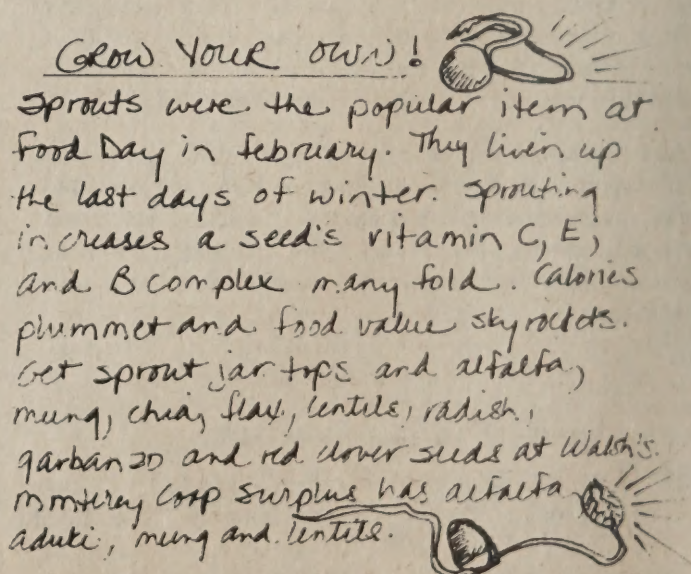 GROW YOUR OWN!
Sprouts were the popular item at
Food Day in february. They liven up
the last days of winter. Sprouting
increases a seed's vitamin C, E,
and B complex many fold. Calories
plummet and food value skyrockets.
Get sprout jar tops and alfalfa,
mung, chia, flax, lentils, radish,
garbanzo and red clover seeds at Walsh's.
Monterey Coop Surplus has alfalfa
aduki, mung and lentils.